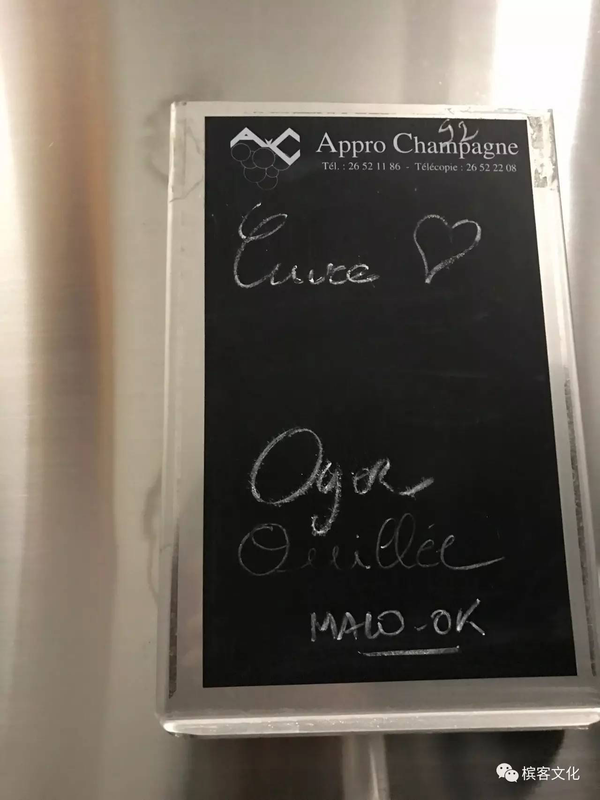 92
Appro Champagne
Tél. : 26 52 11 86 - Télécopie : 26 52 22 08
Cuvee ♡
Oger
Ouillée
MALO-OK
槟客文化